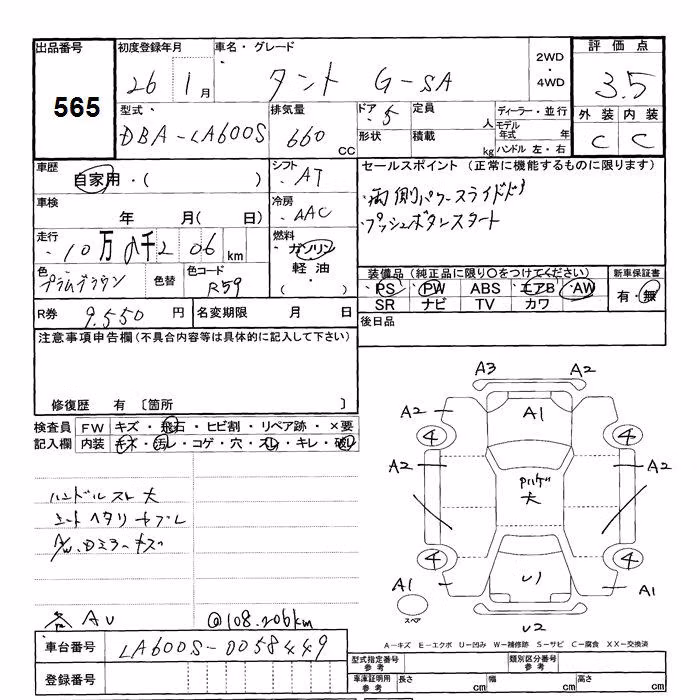 出品番号 初度登録年月 車名・グレード 2WD・4WD 評価点
565 26 1月 タント G-SA 3.5
型式・ 排気量 ドア・5 定員 人 ディーラー・並行 外装 内装
DBA-LA600S 660 CC 形状 積載 kg モデル年式 年 ハンドル 左・右 C C
車歴 自家用・( ) シフト ・AT セールスポイント (正常に機能するものに限ります)
車検 年 月( 日) 冷房 ・AAC ・両側パワースライドドア
走行 ・10万8千206km 燃料 ガソリン 軽油・ ( ) ・プッシュボタンスタート
色 プラムブラウン 色替 色コード R59 装備品(純正品に限り○をつけてください) 新車保証書
・PS ・PW ABS エアB ・AW 有・無
SR ナビ TV カワ
R券 9.550 円 名変期限 月 日 後日品
注意事項申告欄(不具合内容等は具体的に記入して下さい)
修復歴 有 〔箇所 〕
検査員 FW キズ・飛石・ヒビ割・リペア跡・×要
記入欄 内装 キズ・汚レ・コゲ・穴・スレ・キレ・破レ
ハンドルスレ 大
シートヘタリ ヤブレ
ミラーキズ
各 AU @108.206km
A3 A2
A2 A1 A2
4 4
A2 大 A2
4 4
A1 U1 A1
スペア U2
A-キズ E-エクボ U-凹み W-補修跡 S-サビ C-腐食 XX-交換済
車台番号 LA600S-0058449
登録番号
型式指定番号 参考 類別区分番号 参考
車庫証明用 参考 長さ cm 幅 cm 高さ cm